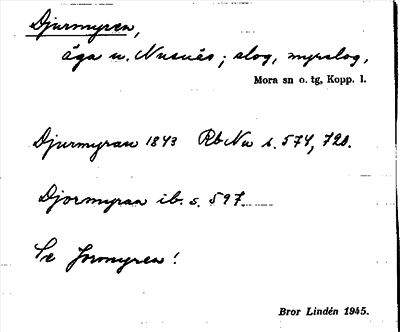 Djurmyren,
äga u. Nusnäs; slog, myrslog,
Mora sn o. tg, Kopp. l.
Djurmyran 1843 Rb Nu s. 574, 720.
Djormyran ib. s. 597.
Se Jormyren!
Bror Lindén 1945.